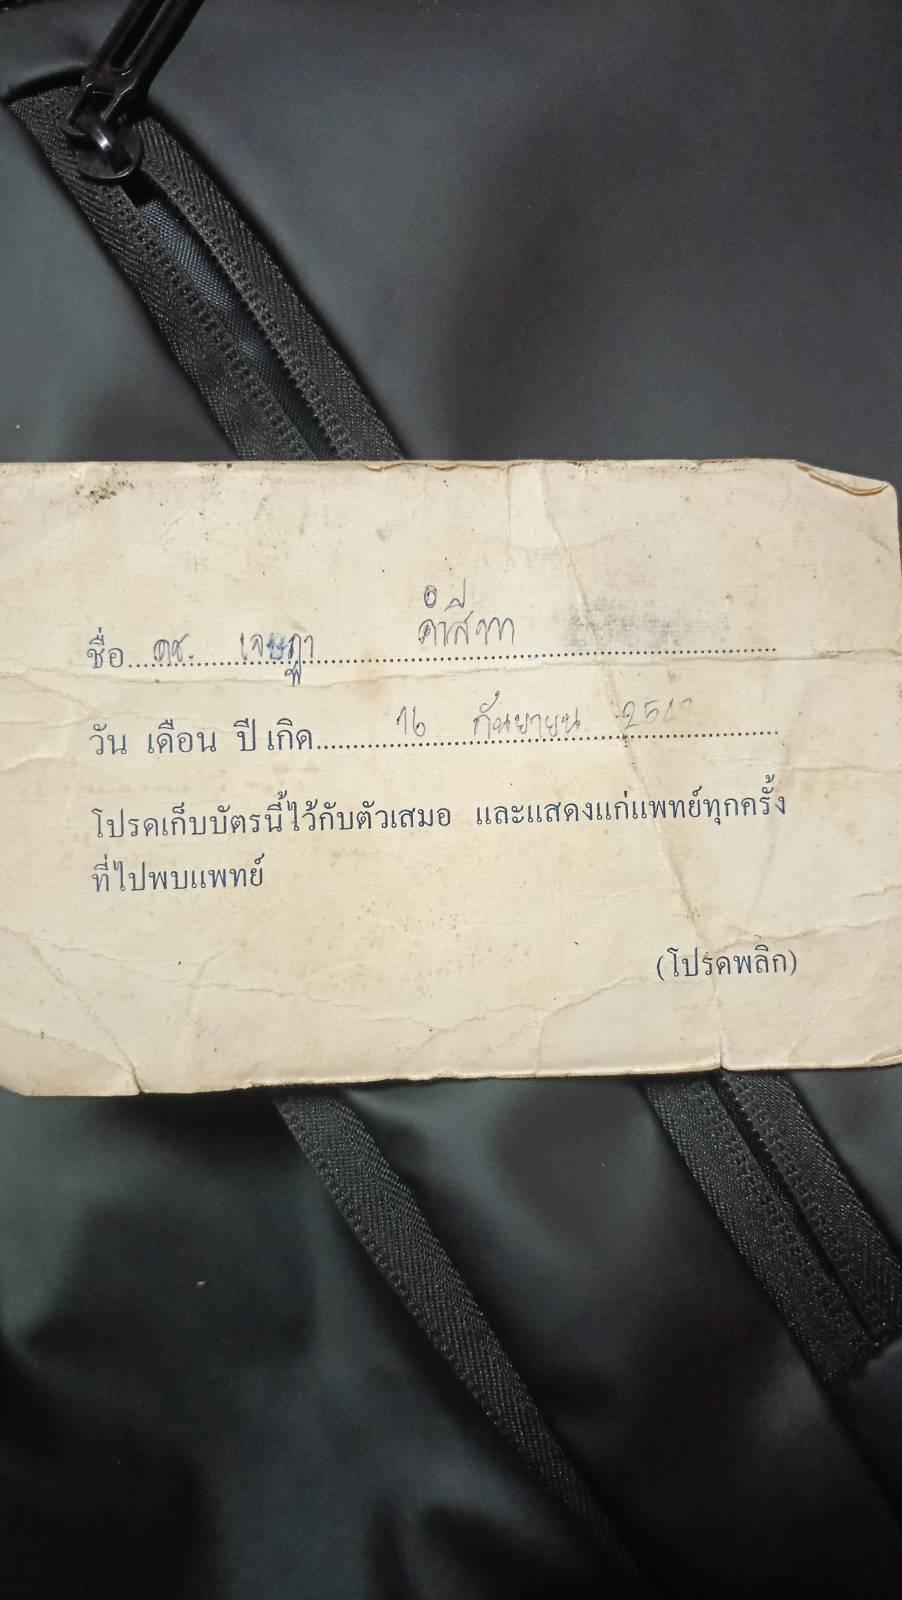 ชื่อ ดช. เจษฎา คำสีทา
วัน เดือน ปี เกิด 16 กันยายน
โปรดเก็บบัตรนี้ไว้กับตัวเสมอ และแสดงแก่แพทย์ทุกครั้ง
ที่ไปพบแพทย์
(โปรดพลิก)